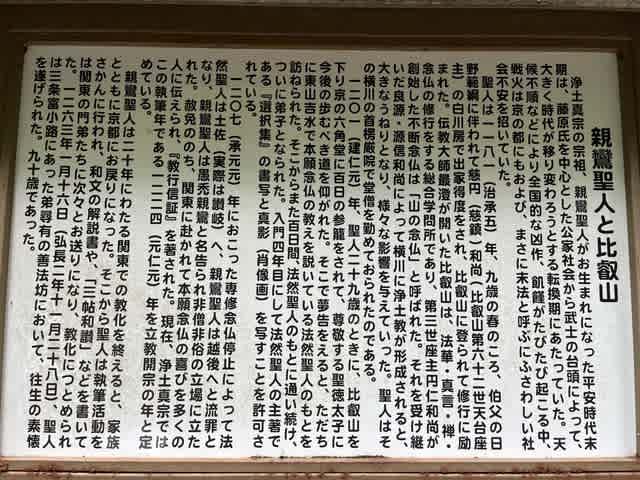 親鸞聖人と比叡山
浄土真宗の宗祖、親鸞聖人がお生まれになった平安時代末
期は、藤原氏を中心とした公家社会から武士の台頭によって、
大きく時代が移り変わろうとする転換期にあたっていた。天
候不順などにより全国的な凶作、飢饉がたびたび起こる中、
戦火は京の都にもおよび、まさに末法と呼ぶにふさわしい社
会不安を招いていた。
聖人は一一八一（治承五）年、九歳の春のころ、伯父の日
野範綱に伴われて慈円（慈鎮）和尚（比叡山第六十二世天台座
主）の白川房で出家得度をされ、比叡山に登られて修行に励
まれた。伝教大師最澄が開いた比叡山は、法華・真言・禅・
念仏の修行をする総合学問所であり、第三世座主円仁和尚が
創始した不断念仏は「山の念仏」と呼ばれた。それを受け継
いだ良源・源信和尚によって横川に浄土教が形成されると、
大きなうねりとなり、様々な影響を与えていった。聖人はそ
の横川の首楞厳院で堂僧を勤めておられたのである。
一二〇一（建仁元）年、聖人二十九歳のときに、比叡山を
下り京の六角堂に百日の参籠をされて、尊敬する聖徳太子に
今後の歩むべき道を仰がれた。そこで夢告をえると、ただち
に東山吉水で本願念仏の教えを説いている法然聖人のもとを
訪ねられた。そこからまた百日間、法然聖人のもとに通い続け、
ついに弟子となられた。入門四年目にして法然聖人の主著で
ある『選択集』の書写と真影（肖像画）を写すことを許さ
れている。
一二〇七（承元元）年におこった専修念仏停止によって法
然聖人は土佐（実際は讃岐）へ、親鸞聖人は越後へと流罪と
なり、親鸞聖人は愚禿親鸞と名告られ非僧非俗の立場に立た
れた。赦免ののち、関東に赴かれて本願念仏の喜びを多くの
人に伝えられ、『教行信証』を著された。現在、浄土真宗では
この執筆年である一二二四（元仁元）年を立教開宗の年と定
めている。
親鸞聖人は二十年にわたる関東での教化を終えると、家族
とともに京都にお戻りになった。そこから聖人は執筆活動を
さかんに行われ、和文の解説書や、「三帖和讃」などを書いて
は関東の門弟たちに次々とお送りになり、教化につとめられ
た。一二六三年一月十六日（弘長二年十一月二十八日）、聖人
は三条富小路にあった弟尋有の善法坊において、往生の素懐
を遂げられた。九十歳であった。